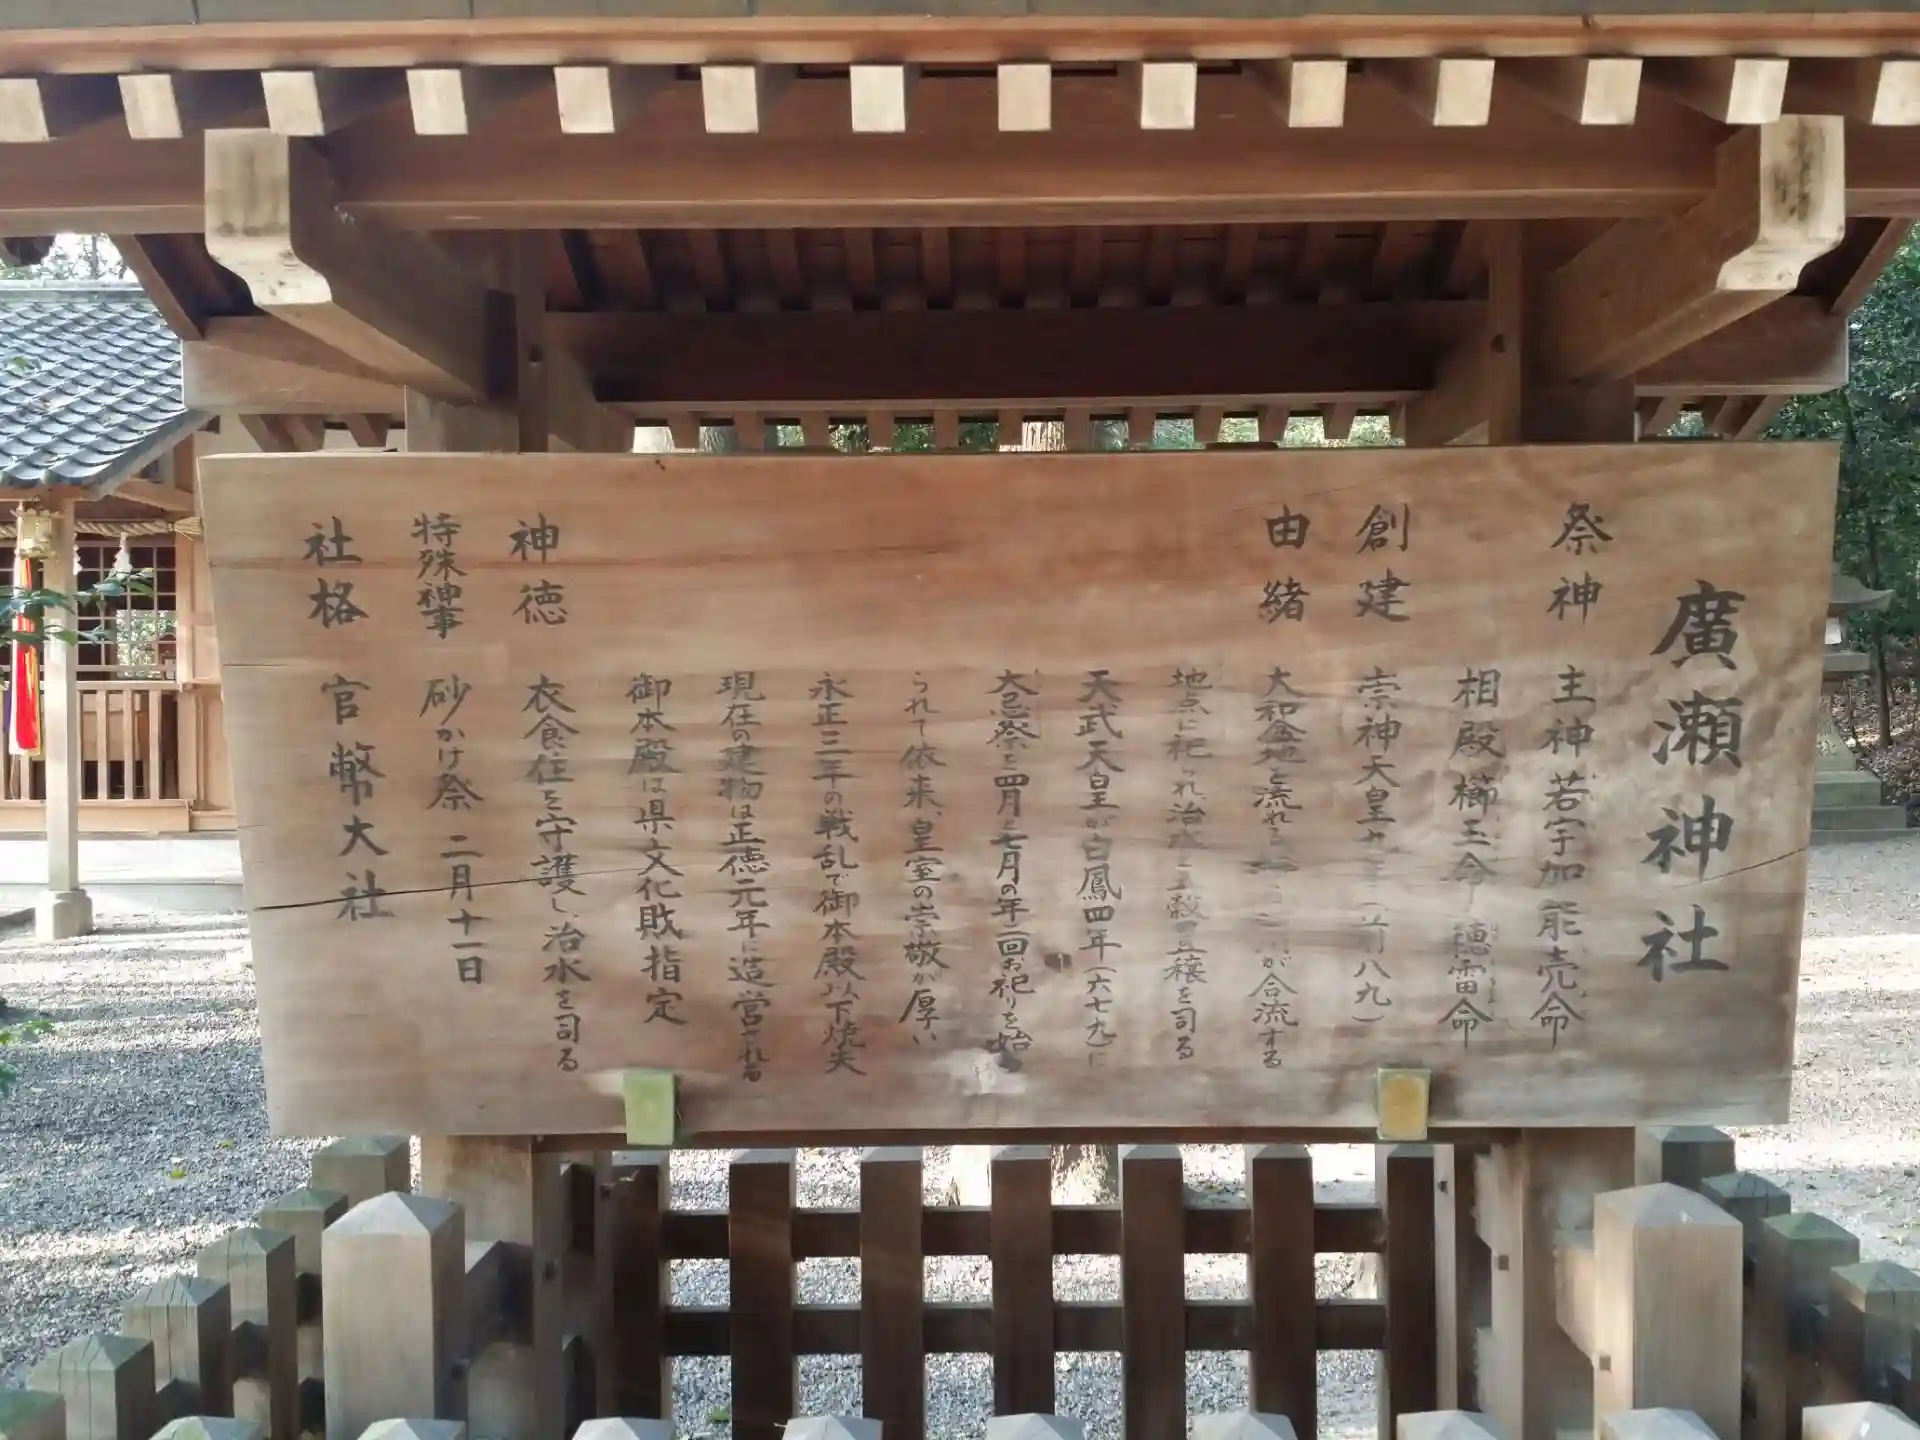 廣瀬神社
祭神 主神 若宇加能売命
相殿 櫛玉命 穂雷命
創建 崇神天皇九年(前八九)
由緒 大和盆地を流れる 川が合流する
地点に祀られ、治水と五穀豊穣を司る
天武天皇が白鳳四年(六七九)に
大忌祭を四月と七月の年二回お祀りを始
られて依来、皇室の崇敬が厚い
永正三年の戦乱で御本殿以下焼失
現在の建物は正徳元年に造営される
御本殿は県文化財指定
神徳 衣食住を守護し、治水を司る
特殊神事 砂かけ祭 二月十一日
社格 官幣大社